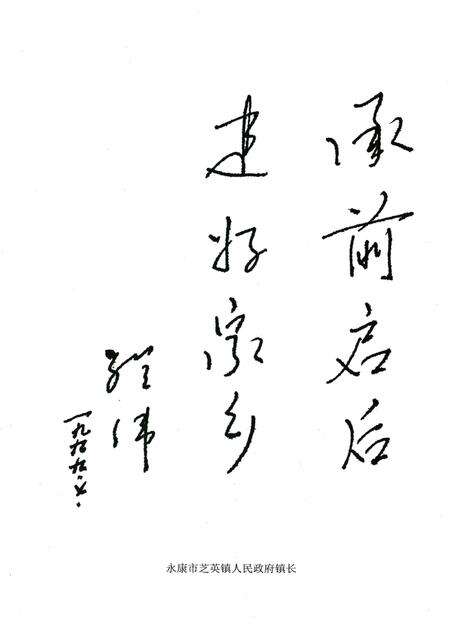 承前启后
建好家乡
伟
一九九九.六.
永康市芝英镇人民政府镇长